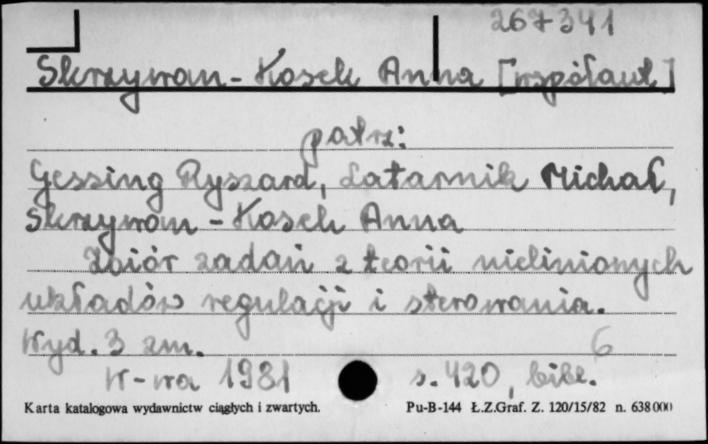 267341
Skrzywan-Kosek Anna [współaut.]
patrz:
Gessing Ryszard, Latarnik Michał,
Skrzywan-Kosek Anna
Zbiór zadań z teorii nieliniowych
układów regulacji i sterowania.
Wyd. 3 zm. 6
W-wa 1981 s. 420, bibl.
Karta katalogowa wydawnictw ciągłych i zwartych. Pu-B-144 Ł.Z.Graf. Z. 120/15/82 n. 638000